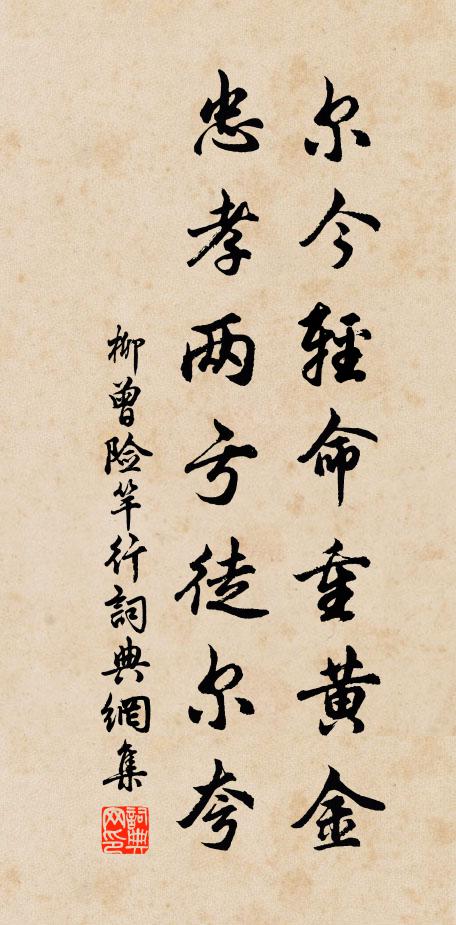 尔今輕命重黄金
忠孝两亏徒尔夸
柳曾险竿行詞典網集
詞典网印